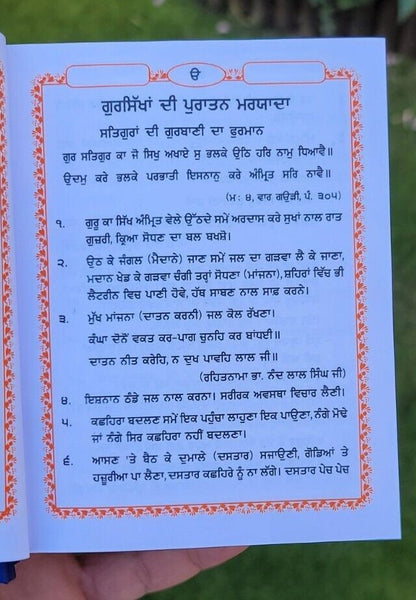 ੳ
ਗੁਰਸਿੱਖਾਂ ਦੀ ਪੁਰਾਤਨ ਮਰਯਾਦਾ
ਸਤਿਗੁਰਾਂ ਦੀ ਗੁਰਬਾਣੀ ਦਾ ਫੁਰਮਾਨ
ਗੁਰ ਸਤਿਗੁਰ ਕਾ ਜੋ ਸਿਖੁ ਅਖਾਏ ਸੁ ਭਲਕੇ ਉਠਿ ਹਰਿ ਨਾਮੁ ਧਿਆਵੈ॥
ਉਦਮੁ ਕਰੇ ਭਲਕੇ ਪਰਭਾਤੀ ਇਸਨਾਨੁ ਕਰੇ ਅੰਮ੍ਰਿਤ ਸਰਿ ਨਾਵੈ॥
(ਮ: ੪, ਵਾਰ ਗਉੜੀ, ਪੰ. ੩੦੫)
੧. ਗੁਰੂ ਕਾ ਸਿੱਖ ਅੰਮ੍ਰਿਤ ਵੇਲੇ ਉੱਠਦੇ ਸਮੇਂ ਅਰਦਾਸ ਕਰੇ ਸੁਖਾਂ ਨਾਲ ਰਾਤ
ਗੁਜ਼ਰੀ, ਕ੍ਰਿਆ ਸੋਧਣ ਦਾ ਬਲ ਬਖਸ਼ੋ।
੨. ਉਠ ਕੇ ਜੰਗਲ (ਮੈਦਾਨੇ) ਜਾਣ ਸਮੇਂ ਜਲ ਦਾ ਗੜਵਾ ਲੈ ਕੇ ਜਾਣਾ,
ਮਦਾਨ ਖੇਡ ਕੇ ਗੜਵਾ ਚੰਗੀ ਤਰ੍ਹਾਂ ਸੋਧਣਾ (ਮਾਂਜਣਾ), ਸ਼ਹਿਰਾਂ ਵਿੱਚ ਭੀ
ਲੈਟਰੀਨ ਵਿਚ ਪਾਣੀ ਹੋਵੇ, ਹੱਥ ਸਾਬਣ ਨਾਲ ਸਾਫ਼ ਕਰਨੇ।
੩. ਮੁੱਖ ਮਾਂਜਨਾ (ਦਾਤਨ ਕਰਨੀ) ਜਲ ਕੋਲ ਰੱਖਣਾ।
ਕੰਘਾ ਦੋਨੋਂ ਵਕਤ ਕਰ-ਪਾਗ ਚੁਨਹਿ ਕਰ ਬਾਂਧਈ॥
ਦਾਤਨ ਨੀਤ ਕਰੇਹਿ, ਨ ਦੁਖ ਪਾਵਹਿ ਲਾਲ ਜੀ॥
(ਰਹਿਤਨਾਮਾ ਭਾ. ਨੰਦ ਲਾਲ ਸਿੰਘ ਜੀ)
੪. ਇਸ਼ਨਾਨ ਠੰਡੇ ਜਲ ਨਾਲ ਕਰਨਾ। ਸਰੀਰਕ ਅਵਸਥਾ ਵਿਚਾਰ ਲੈਣੀ।
੫. ਕਛਹਿਰਾ ਬਦਲਣ ਸਮੇਂ ਇਕ ਪਹੁੰਚਾ ਲਾਹੁਣਾ ਇਕ ਪਾਉਣਾ, ਨੰਗੇ ਮੋਢੇ
ਜਾਂ ਨੰਗੇ ਸਿਰ ਕਛਹਿਰਾ ਨਹੀਂ ਬਦਲਣਾ।
੬. ਆਸਣ 'ਤੇ ਬੈਠ ਕੇ ਦੁਮਾਲੇ (ਦਸਤਾਰ) ਸਜਾਉਣੀ, ਗੋਡਿਆਂ ਤੇ
ਹਜ਼ੂਰੀਆ ਪਾ ਲੈਣਾ, ਦਸਤਾਰ ਕਛਹਿਰੇ ਨੂੰ ਨਾ ਲੱਗੇ। ਦਸਤਾਰ ਪੇਚ ਪੇਚ